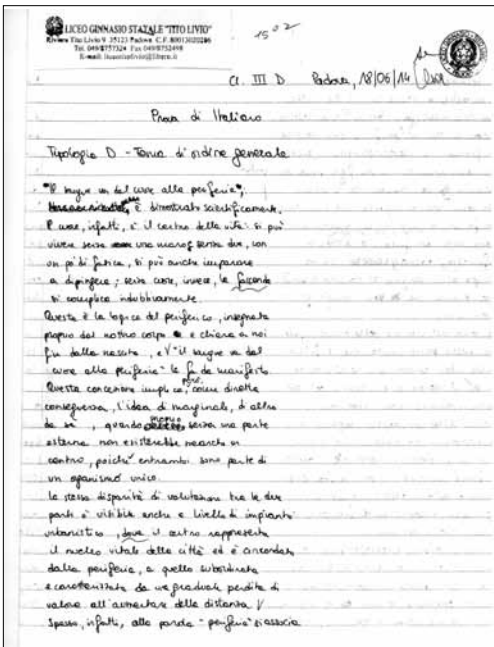 LICEO GINNASIO STATALE "TITO LIVIO"
Riviera Tito Livio 9 35123 Padova C.F. 80013020286
Tel. 049/8757324 Fax 049/8752498
1502
Cl. III D Padova, 18/06/14
Prova di Italiano
Tipologia D - Tema di ordine generale
"Il sangue va dal cuore alla periferia",
è dimostrato scientificamente.
Il cuore, infatti, è il centro della vita: si può
vivere senza una mano, senza due, con
un po' di fatica, si può anche imparare
a dipingere; senza cuore, invece, la faccenda
si complica indubbiamente.
Questa è la logica del periferico, insegnata
proprio dal nostro corpo e chiara a noi
fin dalla nascita, e "il sangue va dal
cuore alla periferia" le fa da manifesto.
Questa concezione implica, però, come diretta
conseguenza, l'idea di marginale, di altro
da sé, quando senza una parte
esterna non esisterebbe neanche un
centro, poiché entrambi sono parte di
un organismo unico.
La stessa disparità di valutazione tra le due
parti è visibile anche a livello di impianto
urbanistico, dove il centro rappresenta
il nucleo vitale della città ed è circondato
dalla periferia, a quello subordinata
e caratterizzata da una graduale perdita di
valore all'aumentare della distanza
Spesso, infatti, alla parola "periferia" si associa